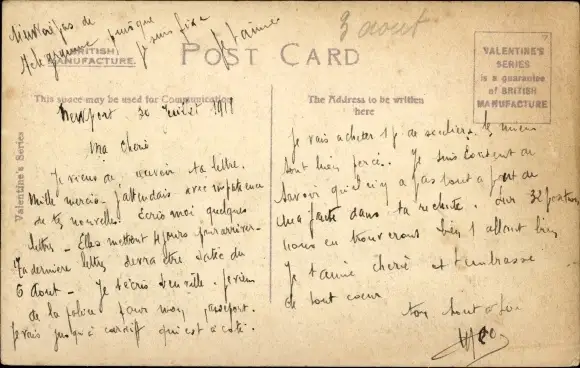 N'envoie pas de
télégramme puisque
je suis fixé
Je t'aime
3 aout
POST CARD
BRITISH
MANUFACTURE.
VALENTINE'S
SERIES
is a guarantee
of BRITISH
MANUFACTURE
This space may be used for Communication
The Address to be written
here
Valentine's Series
Newport 30 Juillet 1919
Ma Cherie
Je viens de recevoir ta lettre.
Mille mercis - j'attendais avec impatience
de tes nouvelles. Ecris moi quelques
lettres - Elles mettront 4 jours pour arriver -
Ta dernière lettre devra être datée du
6 Aout - Je t'écris de ville. Je viens
de la police pour mon passeport.
Je vais jusqu'à Cardiff qui est à coté.
Je vais acheter 1 p de souliers les miens
sont bien percés. Je suis content de
savoir qu'il n'y a pas tout à fait de
ma faute dans ta rechute. Sur 32 positions
nous en trouverons bien 1 allant bien
Je t'aime cherie et t'embrasse
de tout coeur
ton tout à toi